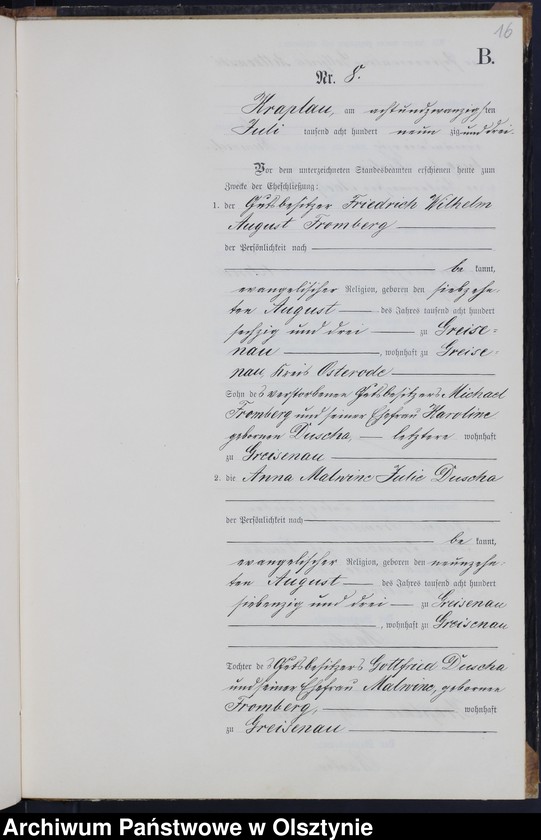 16
B.
Nr. 8.
Kraplau, am achtundzwanzigsten
Juli tausend acht hundert neunzig und drei.
Vor dem unterzeichneten Standesbeamten erschienen heute zum
Zwecke der Eheschließung:
1. der Gutsbesitzer Friedrich Wilhelm
August Fromberg
der Persönlichkeit nach
be kannt,
evangelischer Religion, geboren den siebzehn-
ten August des Jahres tausend acht hundert
sechzig und drei zu Greise-
nau, wohnhaft zu Greise-
nau, Kreis Osterode
Sohn des verstorbenen Gutsbesitzers Michael
Fromberg und seiner Ehefrau Karoline
geborenen Duscha, letztere wohnhaft
zu Greisenau
2. die Anna Malwine Julie Duscha
der Persönlichkeit nach
be kannt,
evangelischer Religion, geboren den neunzehn-
ten August des Jahres tausend acht hundert
siebenzig und drei zu Greisenau
, wohnhaft zu Greisenau
Tochter des Gutsbesitzers Gottfried Duscha
und seiner Ehefrau Malwine, geborenen
Fromberg, wohnhaft
zu Greisenau
Archiwum Państwowe w Olsztynie